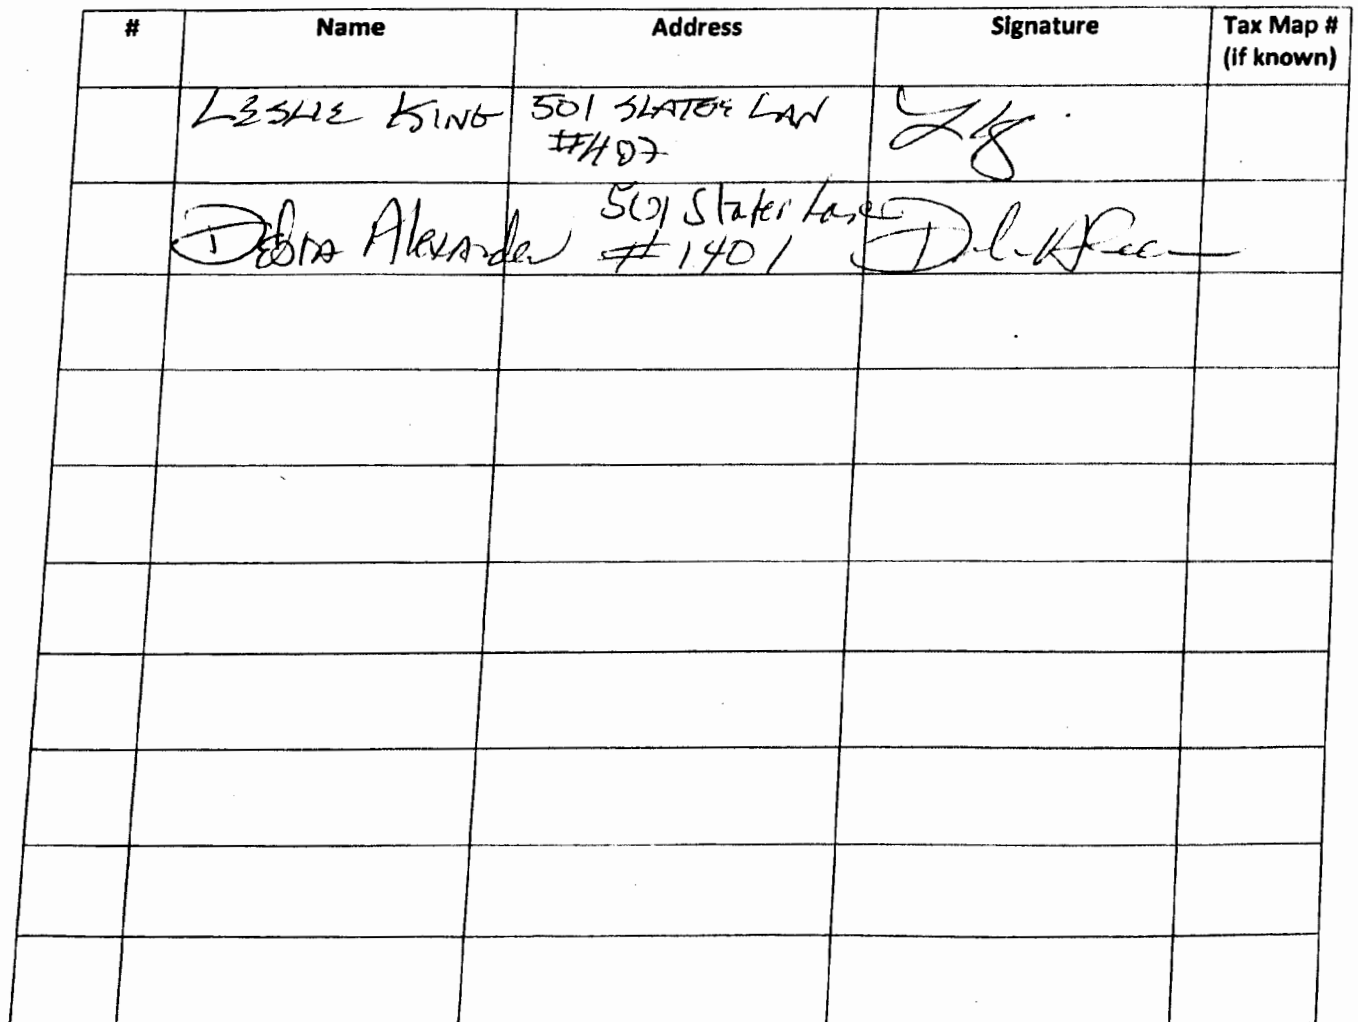 # Name Address Signature Tax Map #
(if known)
LESLIE KING 501 SLATER LAN
#407
Debra Alexander 501 Slater Lane
#1401